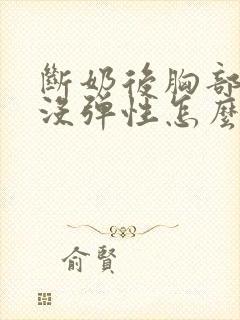 斷奶後胸部
沒彈性怎麼
俞賢